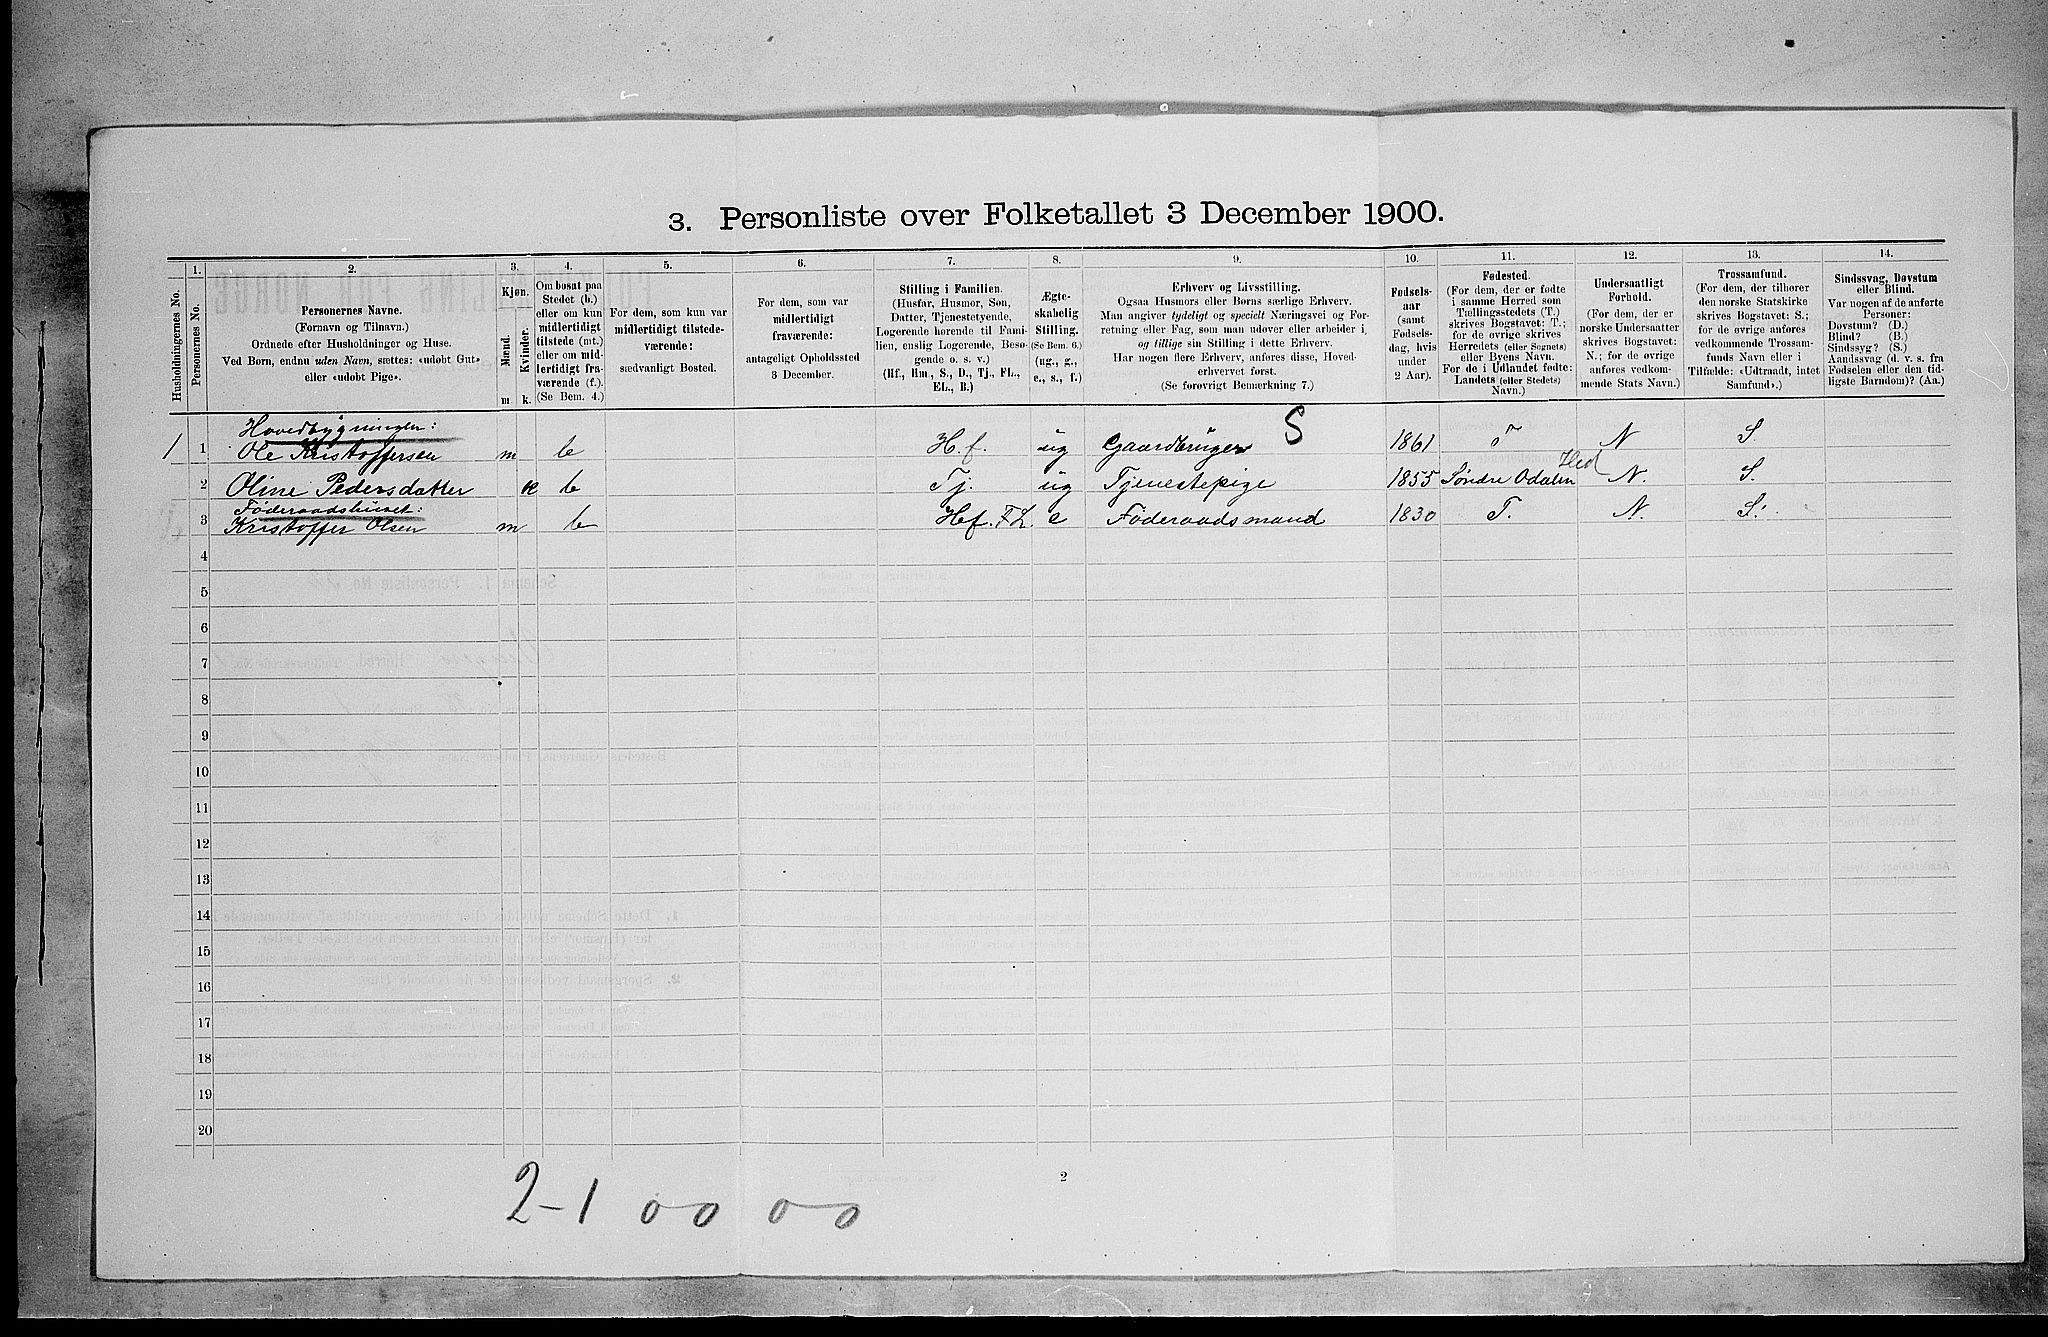 3. Personliste over Folketallet 3 December 1900.
Husholdningernes No.
1.
Personernes No.
2.
Personernes Navne.
(Fornavn og Tilnavn.)
Ordnede efter Husholdninger og Huse.
Ved Børn, endnu uden Navn, sættes: «udøbt Gut»
eller «udøbt Pige».
3.
Kjøn.
Mænd.
Kvinder.
m.
k.
4.
Om bosat paa
Stedet (b.)
eller om kun
midlertidigt
tilstede (mt.)
eller om mid-
lertidigt fra-
værende (f.).
(Se Bem. 4.)
5.
For dem, som kun var
midlertidigt tilstede-
værende:
sædvanligt Bosted.
6.
For dem, som var
midlertidigt
fraværende:
antageligt Opholdssted
3 December.
7.
Stilling i Familien.
(Husfar, Husmor, Søn,
Datter, Tjenestetyende,
Logerende hørende til Fami-
lien, enslig Logerende, Besø-
gende o. s. v.)
(Hf., Hm., S., D., Tj., FL.,
EL., B.)
8.
Ægte-
skabelig
Stilling.
(Se Bem. 6.)
(ug., g.,
e., s., f.)
9.
Erhverv og Livsstilling.
Ogsaa Husmors eller Børns særlige Erhverv.
Man angiver tydeligt og specielt Næringsvei og For-
retning eller Fag, som man udøver eller arbeider i,
og tillige sin Stilling i dette Erhverv.
Har nogen flere Erhverv, anføres disse, Hoved-
erhvervet først.
(Se forøvrigt Bemerkning 7.)
10.
Fødsels-
aar
(samt
Fødsels-
dag, hvis
under
2 Aar).
11.
Fødested.
(For dem, der er fødte
i samme Herred som
Tællingsstedets (T.)
skrives Bogstavet: T.;
for de øvrige skrives
Herredets (eller Sognets)
eller Byens Navn.
For de i Udlandet fødte:
Landets (eller Stedets)
Navn.)
12.
Undersaatligt
Forhold.
(For dem, der er
norske Undersaatter
skrives Bogstavet:
N.; for de øvrige
anføres vedkom-
mende Stats Navn.)
13.
Trossamfund.
(For dem, der tilhører
den norske Statskirke
skrives Bogstavet: S.;
for de øvrige anføres
vedkommende Trossam-
funds Navn eller i
Tilfælde: «Udtraadt, intet
Samfund».)
14.
Sindssvag, Døvstum
eller Blind.
Var nogen af de anførte
Personer:
Døvstum? (D.)
Blind? (B.)
Sindssyg? (S.)
Aandssvag (d. v. s. fra
Fødselen eller den tid-
ligste Barndom)? (Aa.)
Hovedbygningen: S
1 1 Ole Kristoffersen m b H.f. ug Gaardbruger 1861 T N S.
2 Oline Pedersdatter k b Tj. ug Tjenestepige 1855 Søndre Odalen Hed N. S.
Föderaadshuset:
3 Kristoffer Olsen m b Hf. FL. e Föderaadsmand 1830 T. N. S.
4
5
6
7
8
9
10
11
12
13
14
15
16
17
18
19
20
2
2-1 00 00